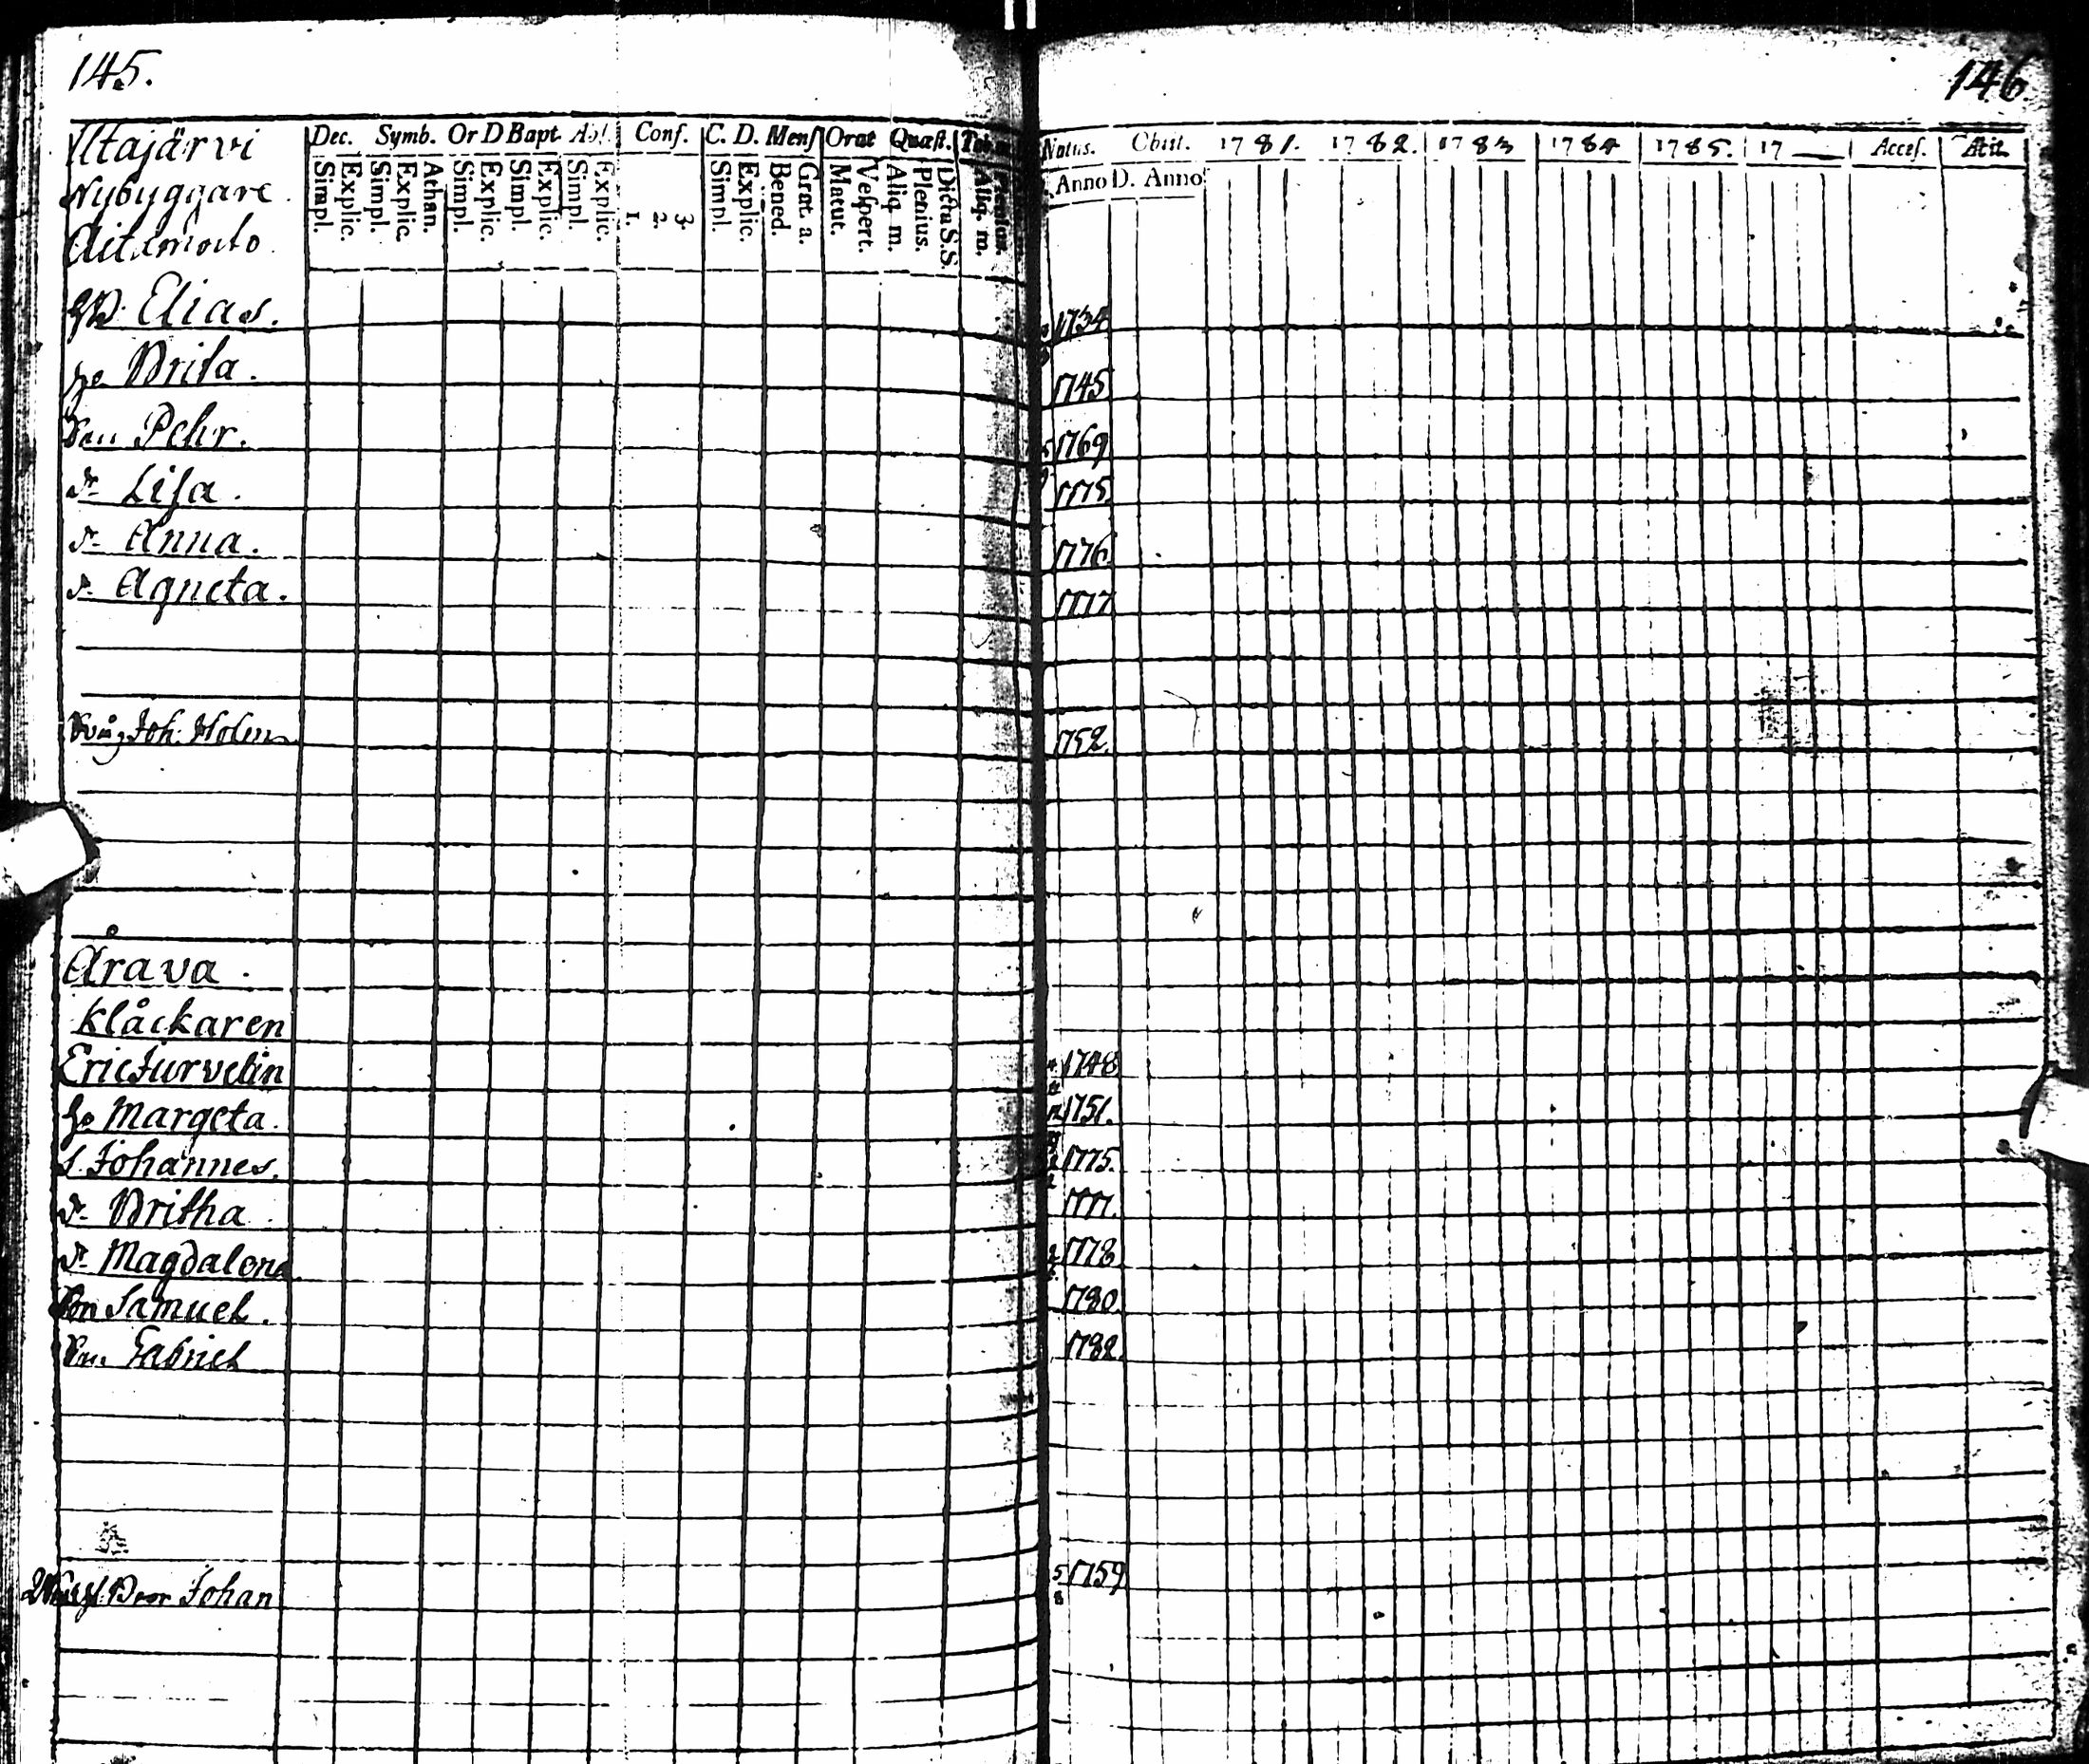 145.
146
Iltajärvi Dec. Symb. Or D Bapt Abſ. Conf. C. D. Menſ Orat Quæſt. Natus. Obiit. 1781. 1782. 1783 1784 1785. 17 Acceſ. Abit
Simpl. Explic. Simpl. Explic. Athan. Simpl. Explic. Simpl. Explic. Simpl. Explic. 1. 2. 3. Simpl. Explic. Bened. Grat. a. Matut. Veſpert. Aliq. m. Plenius. Dicta S.S. Aliq. m. Anno D. Anno
Nybyggare
Elias. 1734
Brita. 1745
Son Pehr. 1769
dr Liſa. 1775.
dr Anna. 1776.
dr Agneta. 1777
Joh. Holm 1752.
Årava.
Klåckaren
Eric Turvelin 1748
Hu Margeta. 1751.
S. Johannes. 1775.
dr Britha 1777.
dr Magdalena 1778
Son Samuel. 1780.
Son Gabriel 1782.
Johan 5/8 1759